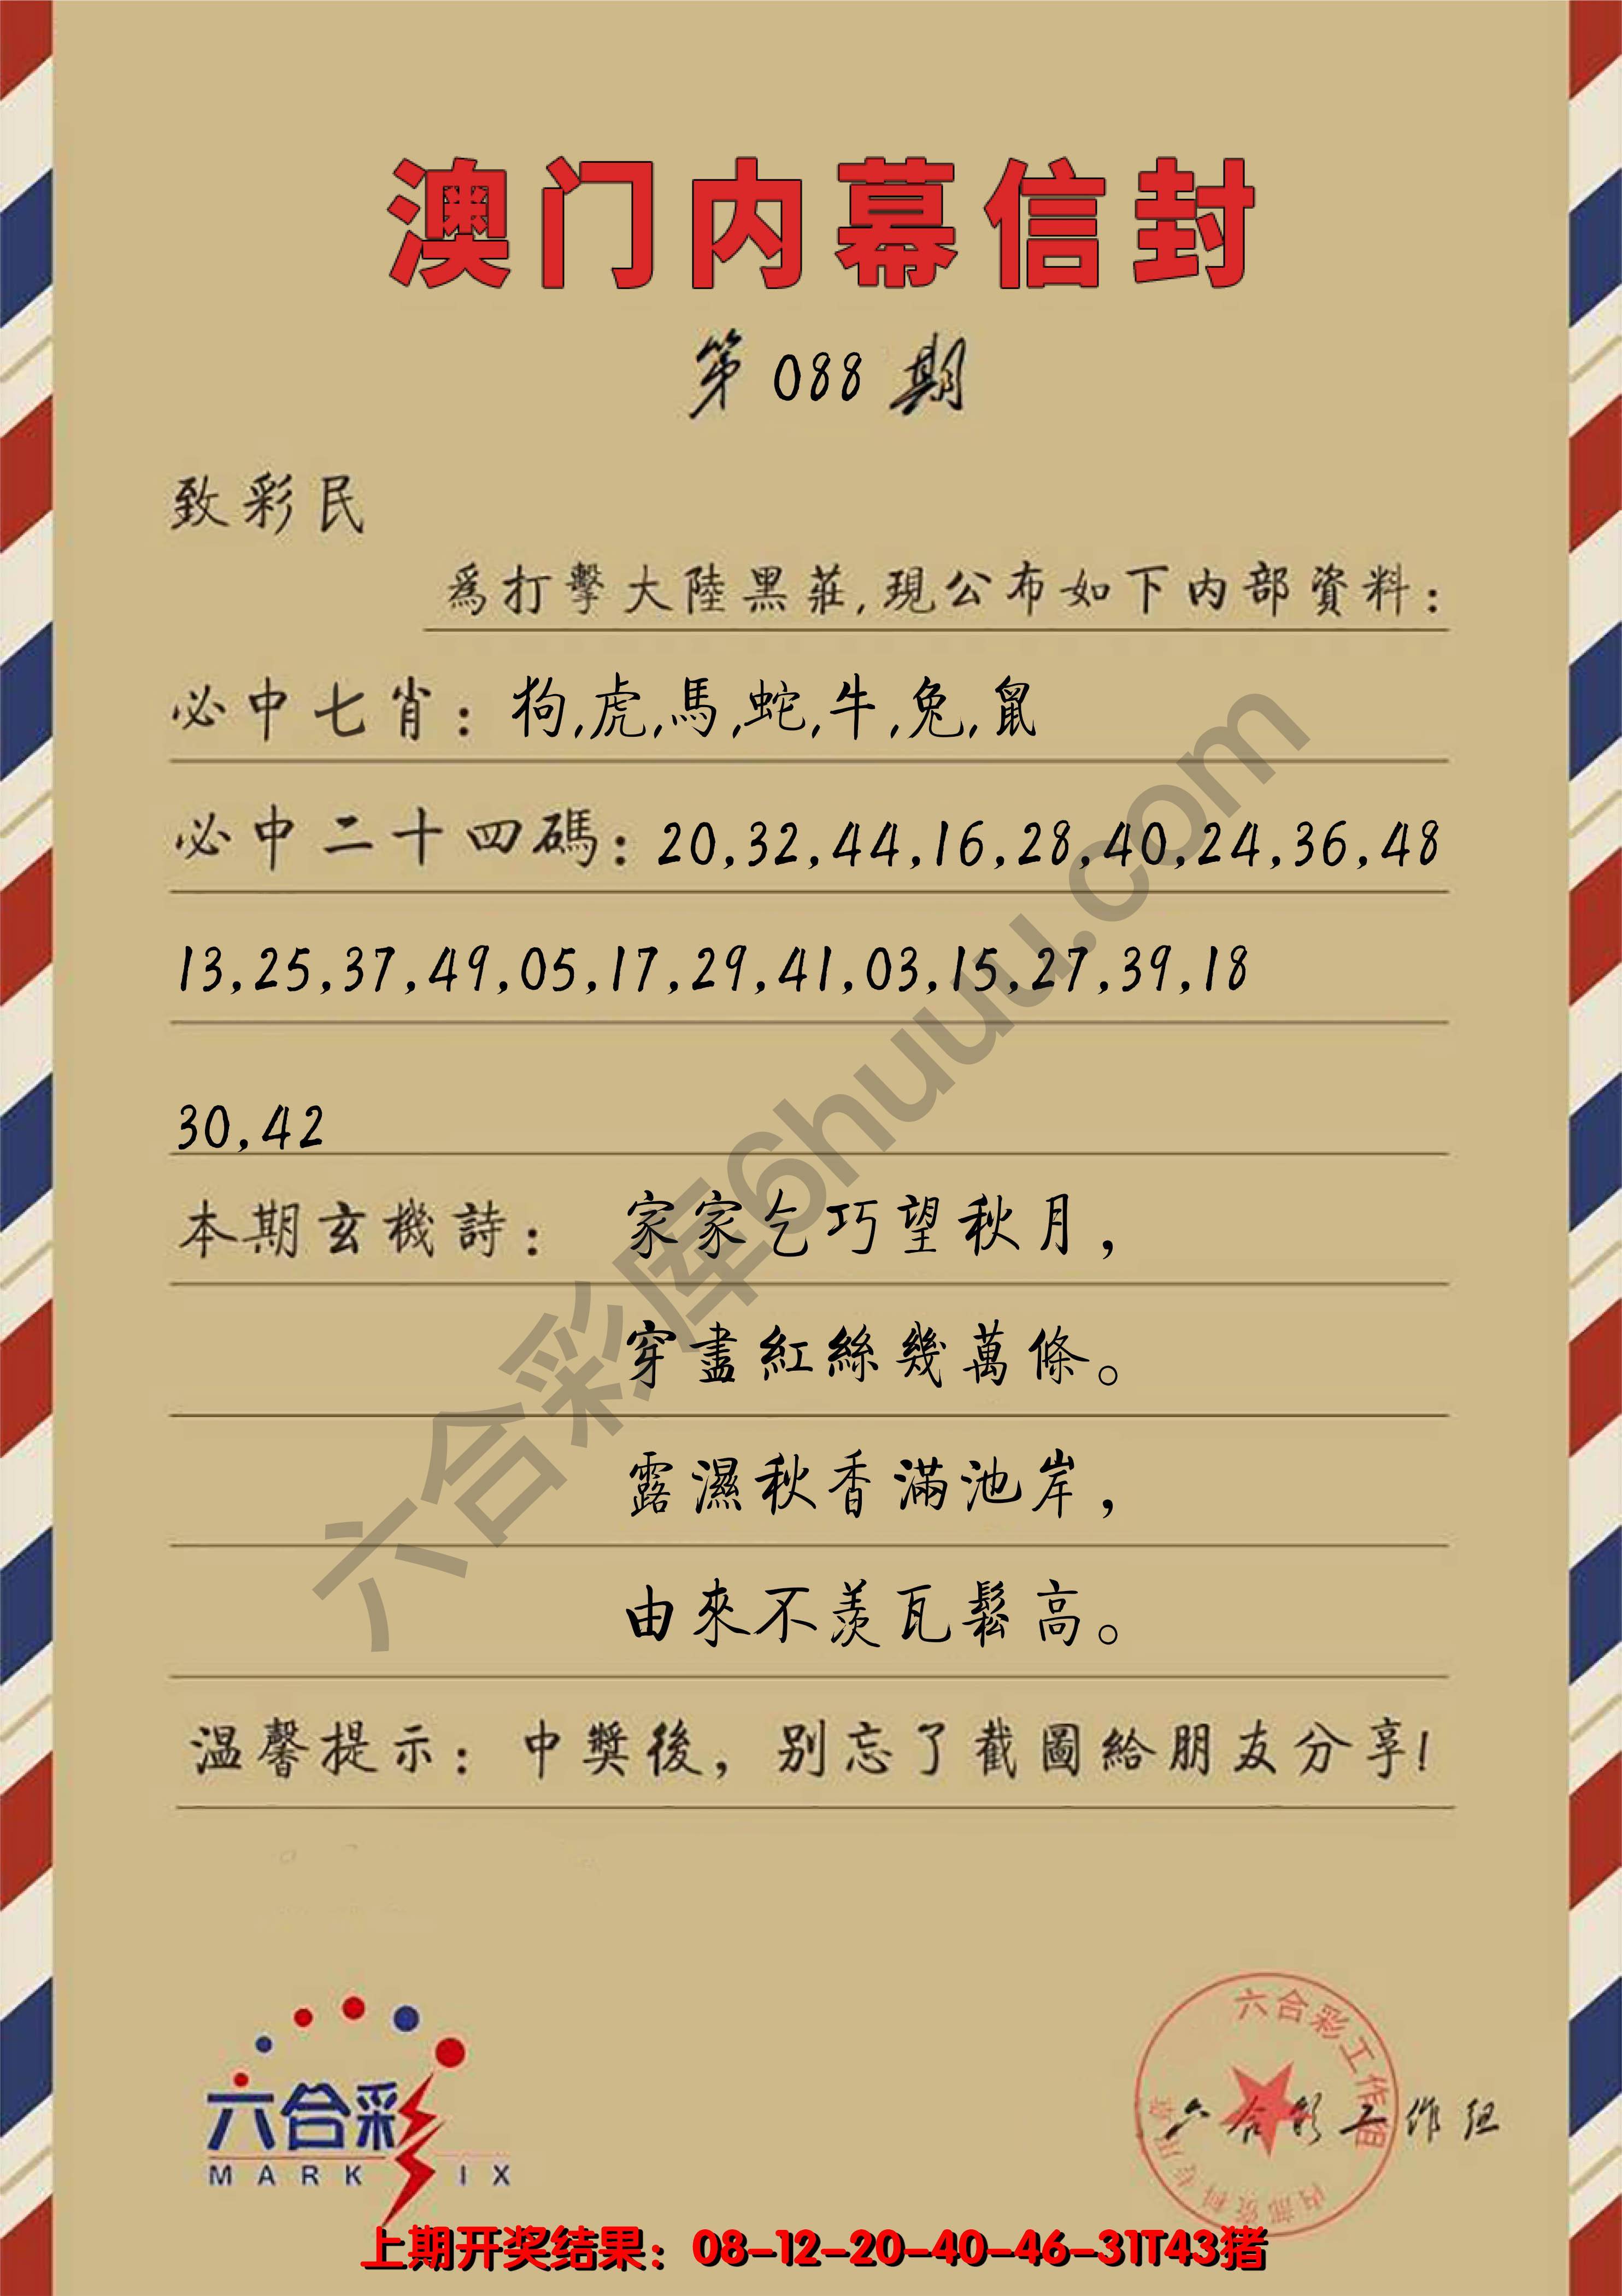 澳门内幕信封
第 088 期
致彩民
為打擊大陸黑莊,現公布如下内部資料:
必中七肖: 狗,虎,馬,蛇,牛,兔,鼠
必中二十四碼: 20,32,44,16,28,40,24,36,48
13,25,37,49,05,17,29,41,03,15,27,39,18
30,42
本期玄機詩: 家家乞巧望秋月,
穿盡紅絲幾萬條。
露濕秋香滿池岸,
由來不羨瓦鬆高。
温馨提示: 中獎後, 别忘了截圖給朋友分享!
六合彩库6huuu.com
六合彩
MARK SIX
六合彩工作组
内部资料专用章
六合彩工作组
上期开奖结果: 08-12-20-40-46-31T43猪